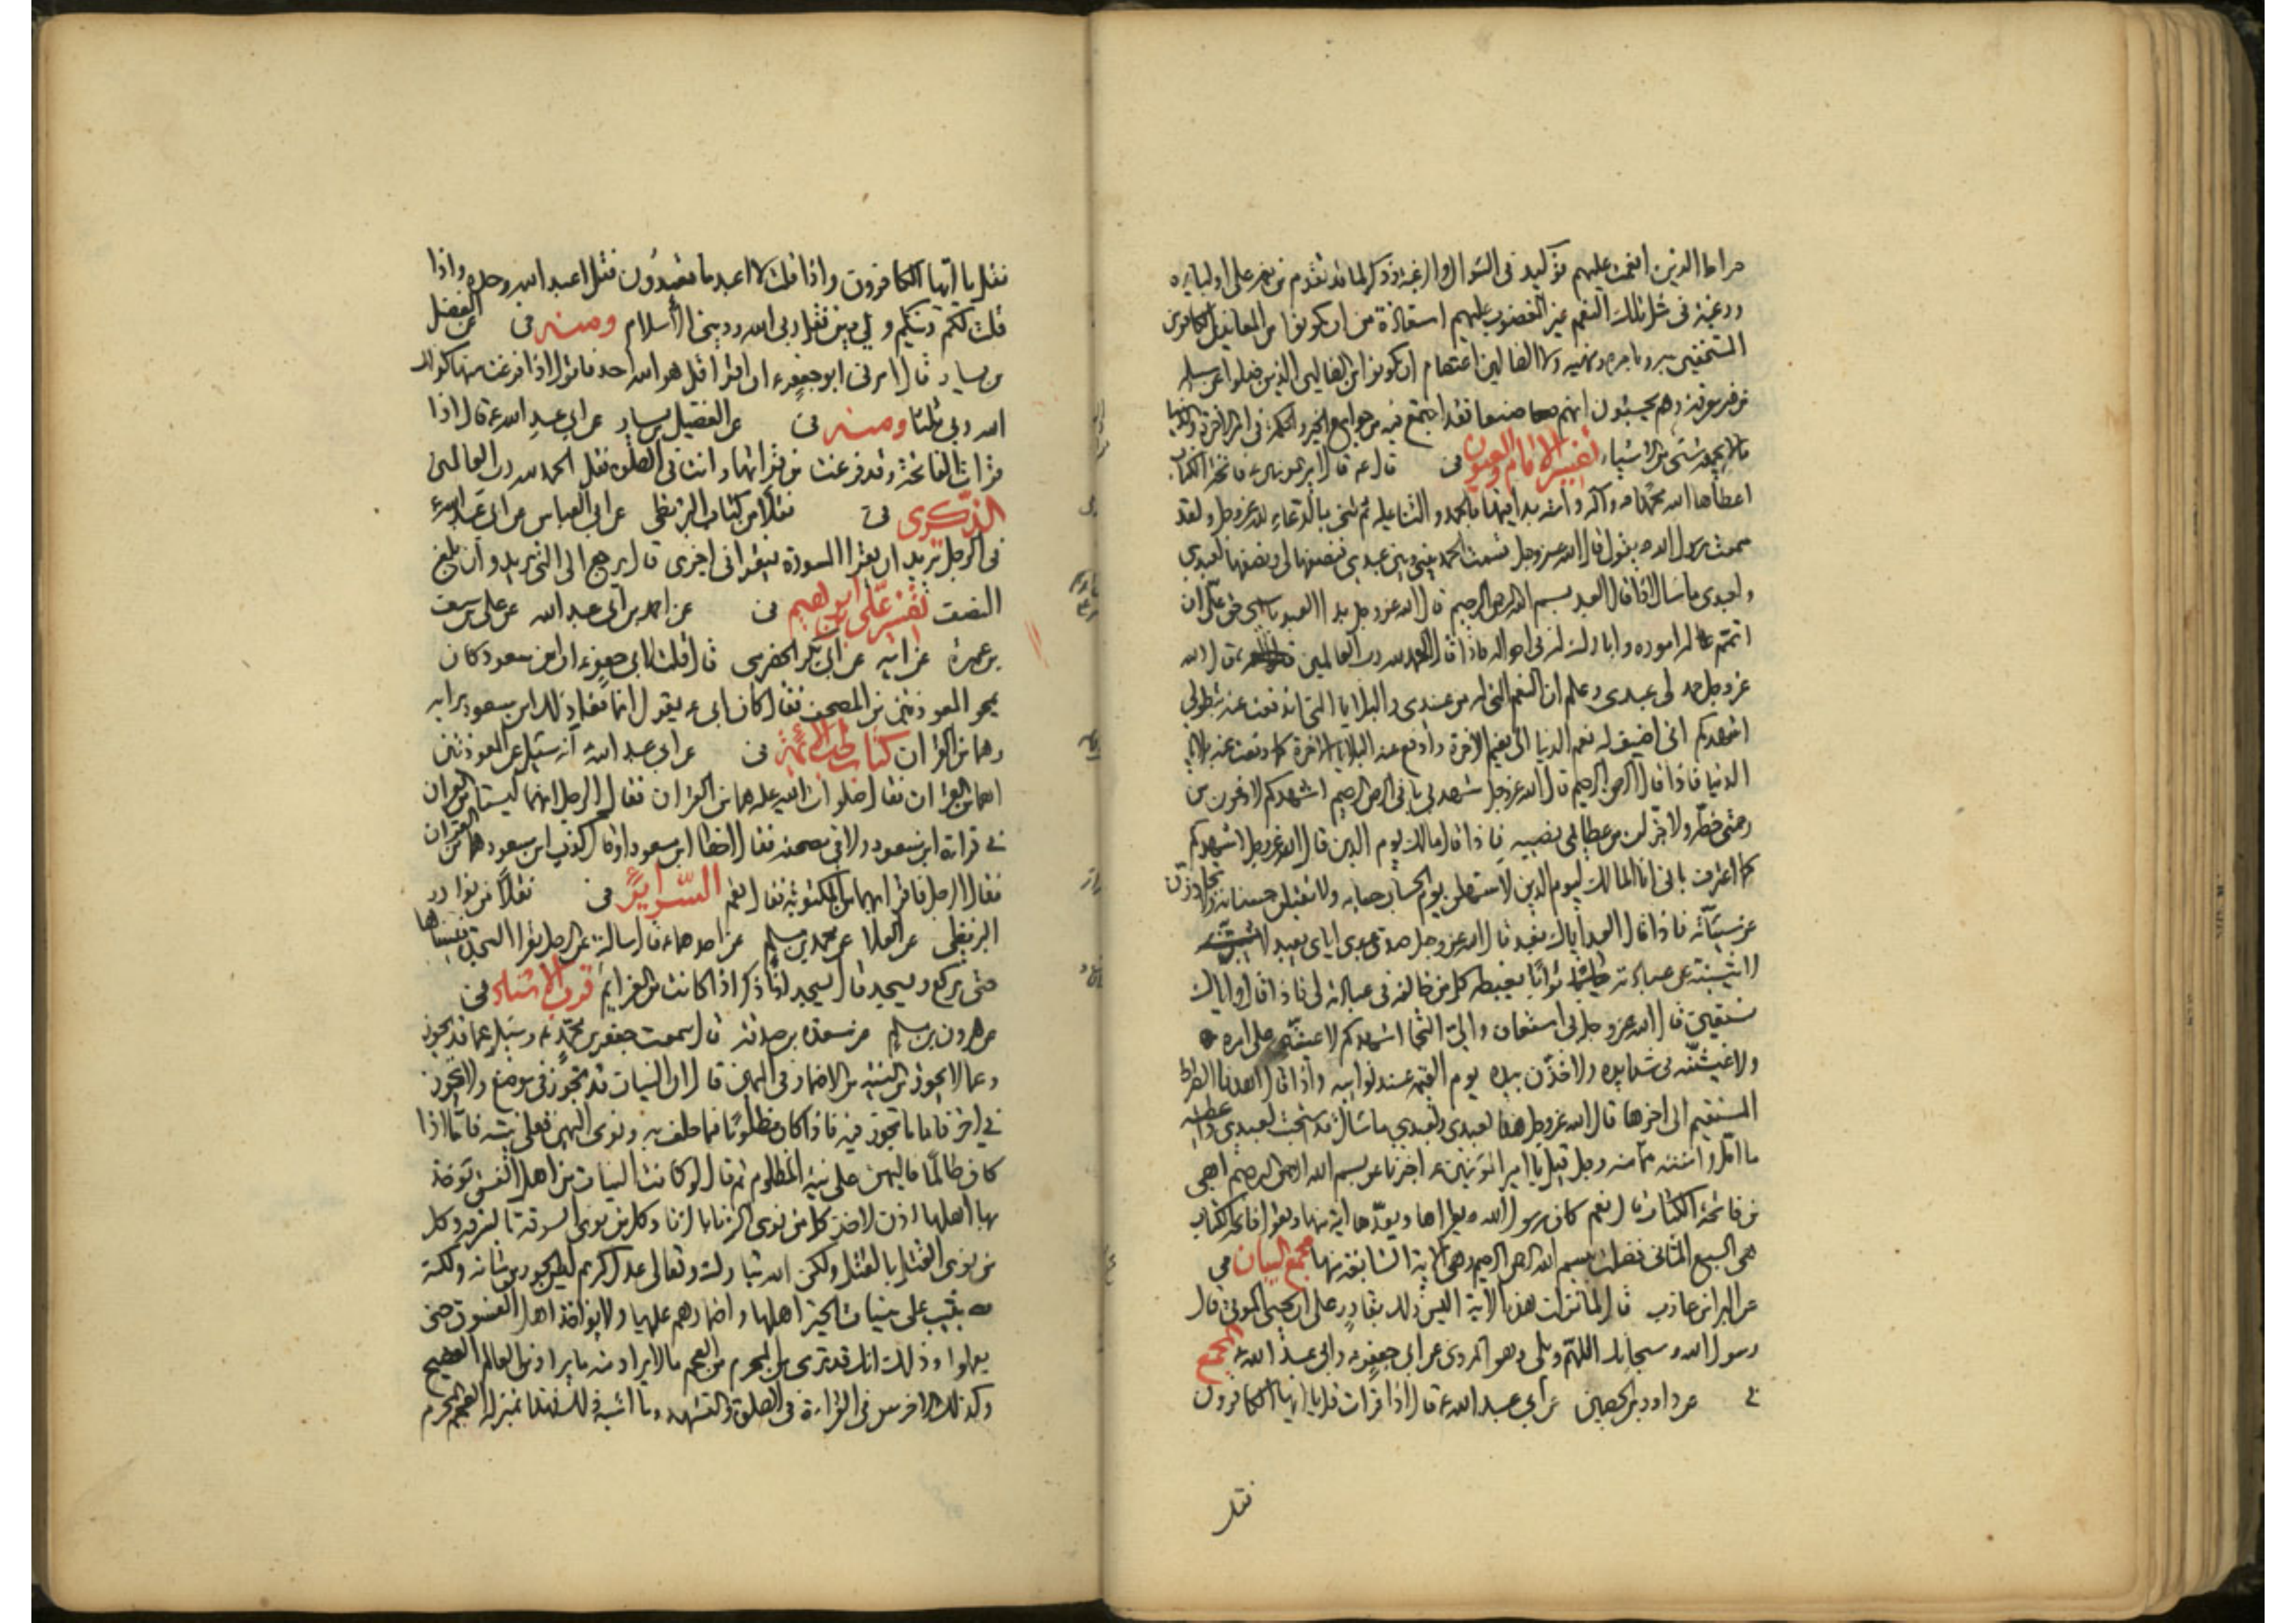 صراط الذين انعمت عليهم توكيد فى السوال والرغبة وذكر لما قد تقدم من نعمه على اوليائه
ورغبة فى مثل تلك النعم غير المغضوب عليهم استعاذة من ان يكونوا من المعاندين الكافرين
المستخفين به وبامره ونهيه ولا الضالين اعتصام ان يكونوا من الضالين الذين ضلوا عن سبيله
من غير معرفة وهم يحسبون انهم صنعا فقد اجتمع فيه من جوامع الخير والحكمة فى امر الاخرة والدنيا
ما لا يجمعه شئ من الاشياء تفسير الامام والعيون فى قال ع قال امير المؤمنين ع فاتحة الكتاب
اعطاها الله محمدا ص وآله وامته بدا فيها بالحمد والثنا عليه ثم ثنى بالدعاء لله عز وجل ولقد
سمعت رسول الله ص يقول قال الله عز وجل قسمت الحمد بينى وبين عبدى فنصفها لى ونصفها لعبدى
ولعبدى ما سال اذا قال العبد بسم الله الرحمن الرحيم قال الله عز وجل بدا العبد باسمى حق على ان
اتمم له اموره وابارك له فى احواله فاذا قال الحمد لله رب العالمين قال الله
عز وجل حمد لى عبدى وعلم ان النعم التى له من عندى والبلايا التى اندفعت عنه بتطولى
اشهدكم انى اضيف له نعم الدنيا الى نعيم الاخرة وادفع عنه بلايا الاخرة كما دفعت عنه بلايا
الدنيا فاذا قال الرحمن الرحيم قال الله عز وجل شهد لى بانى الرحمن الرحيم اشهدكم لاوفرن من
رحمتى حظه ولاجزلن من عطائى نصيبه فاذا قال مالك يوم الدين قال الله عز وجل اشهدكم
كما اعترف بانى انا المالك ليوم الدين لاسهلن يوم الحساب حسابه ولاتقبلن حسناته ولاتجاوزن
عن سيئاته فاذا قال العبد اياك نعبد قال الله عز وجل صدق عبدى اياى يعبد
لاثيبنه عن عبادته ثوابا يغبطه كل من خالفه فى عبادته لى فاذا قال واياك
نستعين قال الله عز وجل بى استعان والىّ التجا اشهدكم لاعيننه على امره
ولاغيثنه فى شدايده ولاخذن بيده يوم القيمة عند نوائبه واذا قال اهدنا الصراط
المستقيم الى اخرها قال الله عز وجل هذا لعبدى ولعبدى ما سال قد استجبت لعبدى واعطيته
ما امل وامنته مما منه وجل قيل يا امير المؤمنين ع اخبرنا عن بسم الله الرحمن الرحيم اهى
من فاتحة الكتاب قال نعم كان رسول الله ص يقراها ويعدها اية منها ويقول فاتحة الكتاب
هى السبع المثانى فضلت ببسم الله الرحمن الرحيم وهى الاية السابعة منها مجمع البيان فى
عن البرا بن عازب قال لما نزلت هذه الاية اليس ذلك بقادر على ان يحيى الموتى قال
رسول الله ص سبحانك اللهم وبلى وهو المروى عن ابى جعفر ع وابى عبد الله ع المجمع
فى عن داود بن الحصين عن ابى عبد الله ع قال اذا قرات قل يا ايها الكافرون
فقل
فقل يا ايها الكافرون واذا قلت لا اعبد ما تعبدون فقل اعبد الله وحده واذا
قلت لكم دينكم ولى دين فقل ربى الله ودينى الاسلام ومنه فى عن الفضيل
بن يسار قال امرنى ابو جعفر ع ان اقرا قل هو الله احد فاقول اذا فرغت منها كذلك
الله ربى ثلثا ومنه فى عن الفضيل بن يسار عن ابى عبد الله ع قال اذا
قرات الفاتحة وقد فرغت من قرائتها وانت فى الصلوة فقل الحمد لله رب العالمين
الذكرى فى نقلا من كتاب البزنطى عن ابى العباس عن ابى عبد الله ع
فى الرجل يريد ان يقرا السورة فيقرا فى اخرى قال يرجع الى التى يريد وان بلغ
النصف تفسير على بن ابراهيم فى عن احمد بن ابى عبد الله عن على بن سيف
بن عميرة عن ابيه عن ابى بكر الحضرمى قال قلت لابى جعفر ع ان ابن مسعود كان
يمحو المعوذتين من المصحف فقال كان ابى ع يقول انما فعل ذلك ابن مسعود برايه
وهما من القران كتاب طب الائمة فى عن ابى عبد الله ع انه سئل عن المعوذتين
اهما من القران فقال صلوات الله عليه هما من القران فقال الرجل انهما ليستا من القران
فى قراءة ابن مسعود ولا فى مصحفه فقال اخطا ابن مسعود او قال كذب ابن مسعود هما من القران
فقال الرجل فاقرا بهما فى المكتوبة فقال نعم السرائر فى نقلا من نوادر
البزنطى عن العلا عن محمد بن مسلم عن احدهما ع قال سالته عن الرجل يقرا السجدة فينساها
حتى يركع ويسجد قال يسجد اذا ذكر اذا كانت من العزايم قرب الاسناد فى
عن هرون بن مسلم عن مسعدة بن صدقة قال سمعت جعفر بن محمد ع وسئل عما قد يجوز
وعما لا يجوز من النية من الاضمار فى اليمين قال ان النيات قد تجوز فى موضع ولا تجوز
فى اخر فاما ما تجوز فيه فاذا كان مظلوما فما حلف به ونوى اليمين فعلى نيته فاما اذا
كان ظالما فاليمين على نية المظلوم ثم قال لو كانت النيات من اهل الفسق توخذ
بها اهلها اذن لاخذ كل من نوى الزنا بالزنا وكل من نوى السرقة بالسرقة وكل
من نوى القتل بالقتل ولكن الله تبارك وتعالى عدل كريم ليس الجور من شانه ولكنه
يثيب على نيات الخير اهلها واضمارهم عليها ولا يواخذ اهل الفسوق حتى
يعملوا وذلك انك قد ترى من المحرم من العجم ما لا يراد منه ما يراد من العالم الفصيح
وكذلك الاخرس فى القراءة فى الصلوة والتشهد وما اشبه ذلك فهذا بمنزلة العجم المحرم